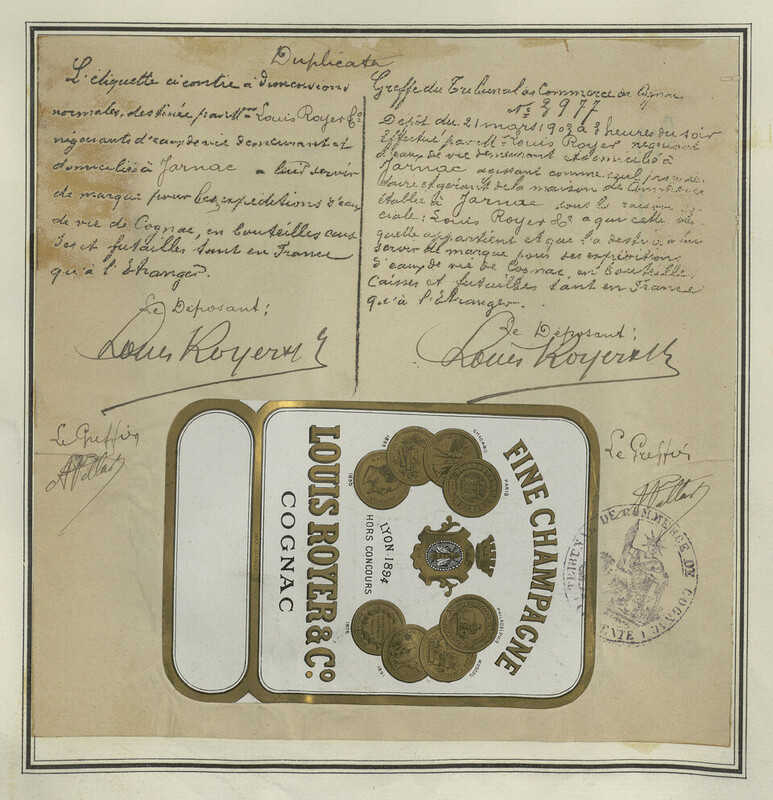 Duplicata
L'étiquette ci contre à dimensions
normales, destinée par Mrs Louis Royer & Co
négociants d'eaux de vie demeurant et
domiciliés à Jarnac a lui servir
de marque pour les expéditions d'eaux
de vie de Cognac, en bouteilles cais
ses et futailles tant en France
qu'à l'Etranger.
Le Déposant;
Louis Royer & Co
Le Greffier
Greffe du Tribunal de Commerce de Cognac
No 3977
Dépôt du 21 mars 190 à 3 heures du soir
Effectué par M. Louis Royer négociant
d'eaux de vie demeurant et domicilié à
Jarnac agissant comme
et gérant de la maison de Commerce
établie à Jarnac sous la raison so
ciale: Louis Royer & Co a qui cette éti
quette appartient et qui l'a destinée à lui
servir de marque pour ses expéditions
d'eaux de vie de Cognac, en bouteilles
Caisses et futailles tant en France
qu'à l'Etranger.
Le Déposant;
Louis Royer & Co
Le Greffier
TRIBUNAL DE COMMERCE DE COGNAC
FINE CHAMPAGNE
CHICAGO
1893
PARIS
1895
LYON 1894
HORS CONCOURS
PHILADELPHIE
1876
MOSCOU
1891
LOUIS ROYER & Co.
COGNAC